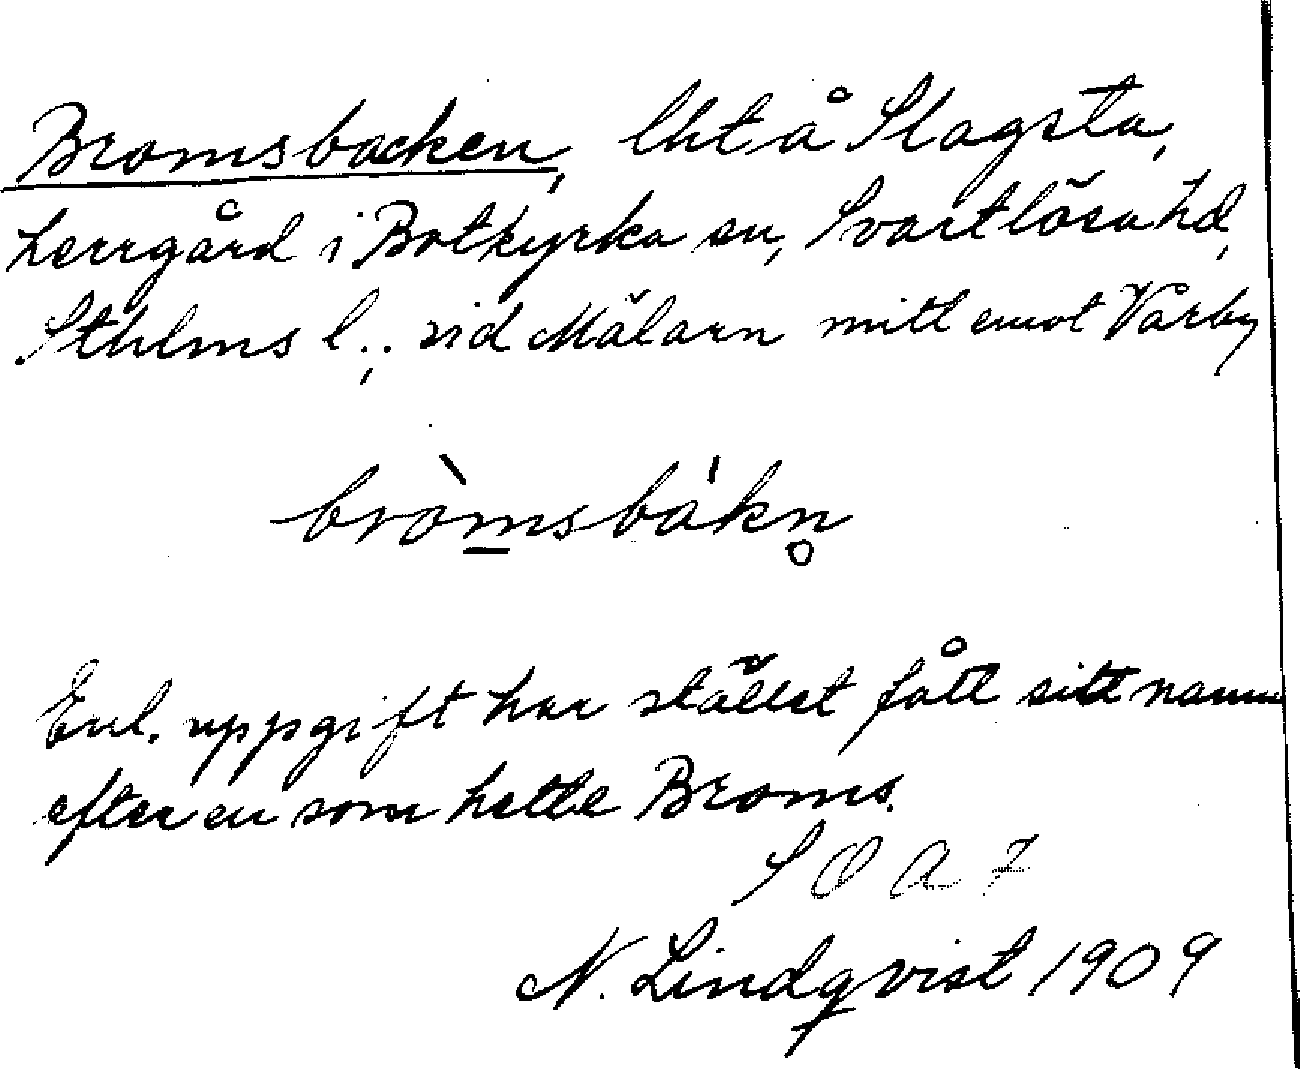 Bromsbacken, lht å Slagsta,
herrgård i Botkyrka sn, Svartlösa hd,
Sthlms l.; vid Mälaren mitt emot Vårby
bròmsbákn̥
Enl. uppgift har stället fått sitt namn
efter en som hette Broms.
S O A 7
N. Lindqvist 1909